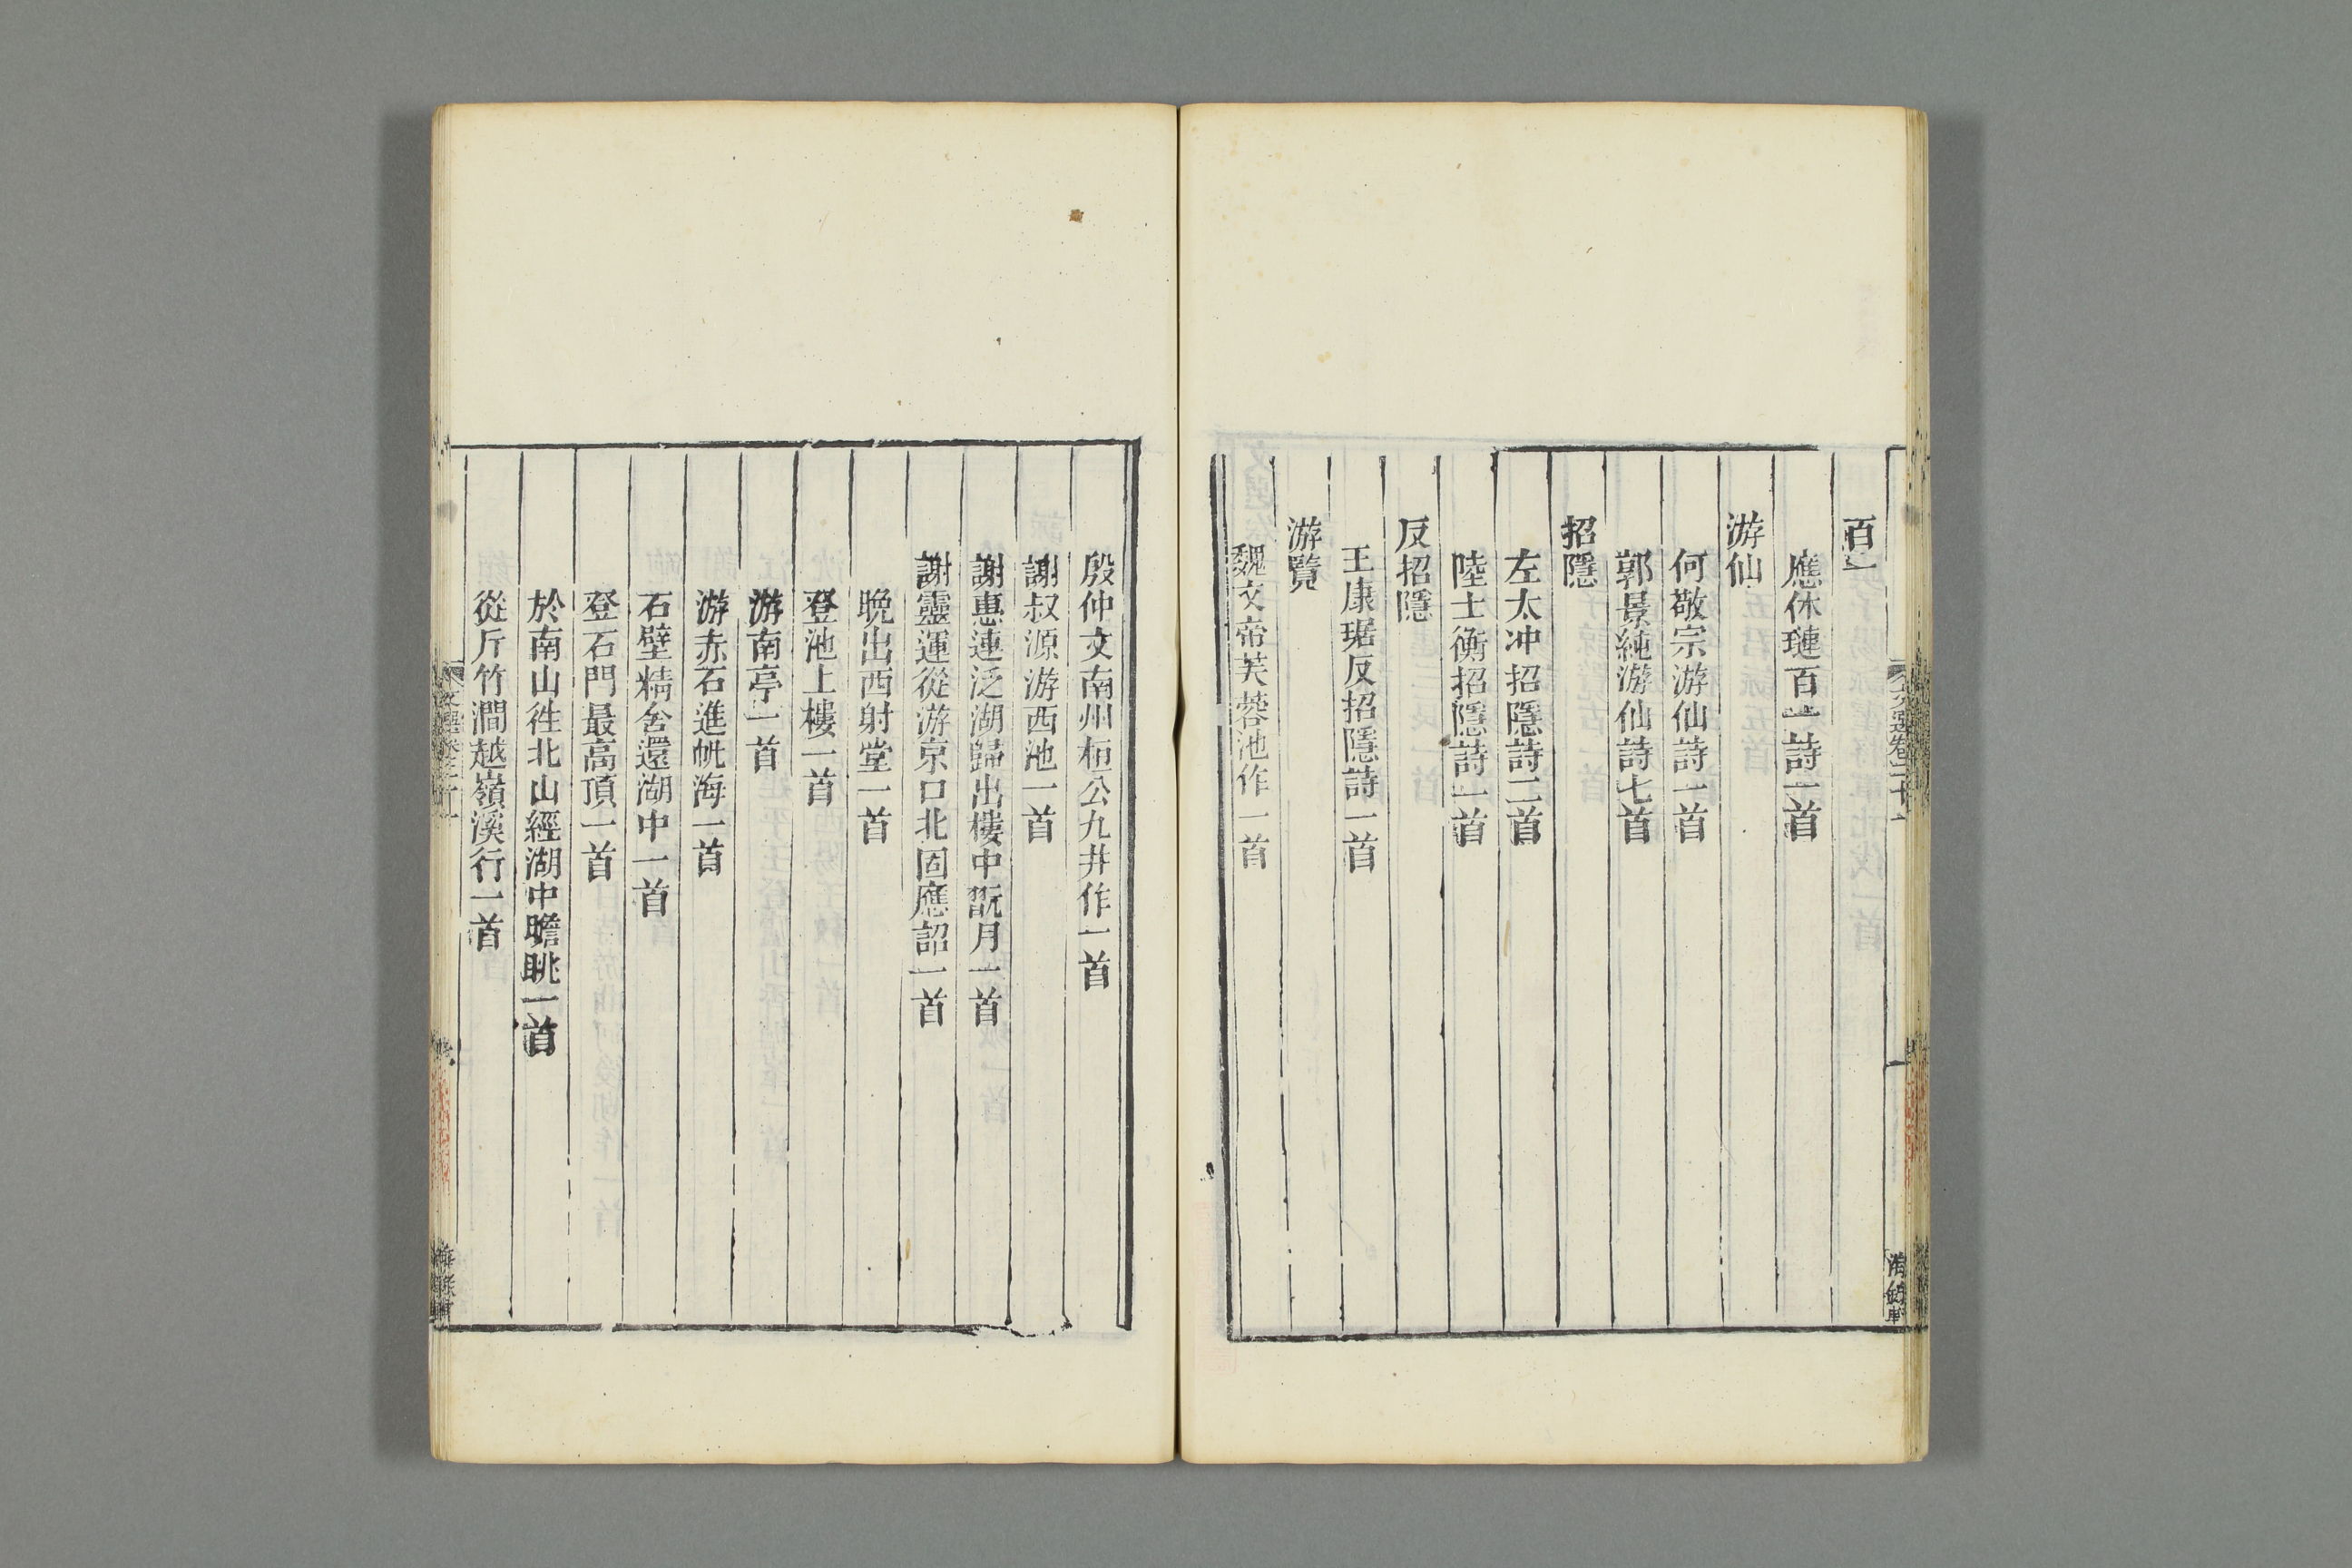 百一
應休璉百一詩一首
游仙
何敬宗游仙詩一首
郭景純游仙詩七首
招隱
左太冲招隱詩二首
陸士衡招隱詩一首
反招隱
王康琚反招隱詩一首
游覽
魏文帝芙蓉池作一首
殷仲文南州桓公九井作一首
謝叔源游西池一首
謝惠連泛湖歸出樓中翫月一首
謝靈運從游京口北固應詔一首
晚出西射堂一首
登池上樓一首
游南亭一首
游赤石進帆海一首
石壁精舍還湖中一首
登石門最高頂一首
於南山徃北山經湖中瞻眺一首
從斤竹澗越嶺溪行一首